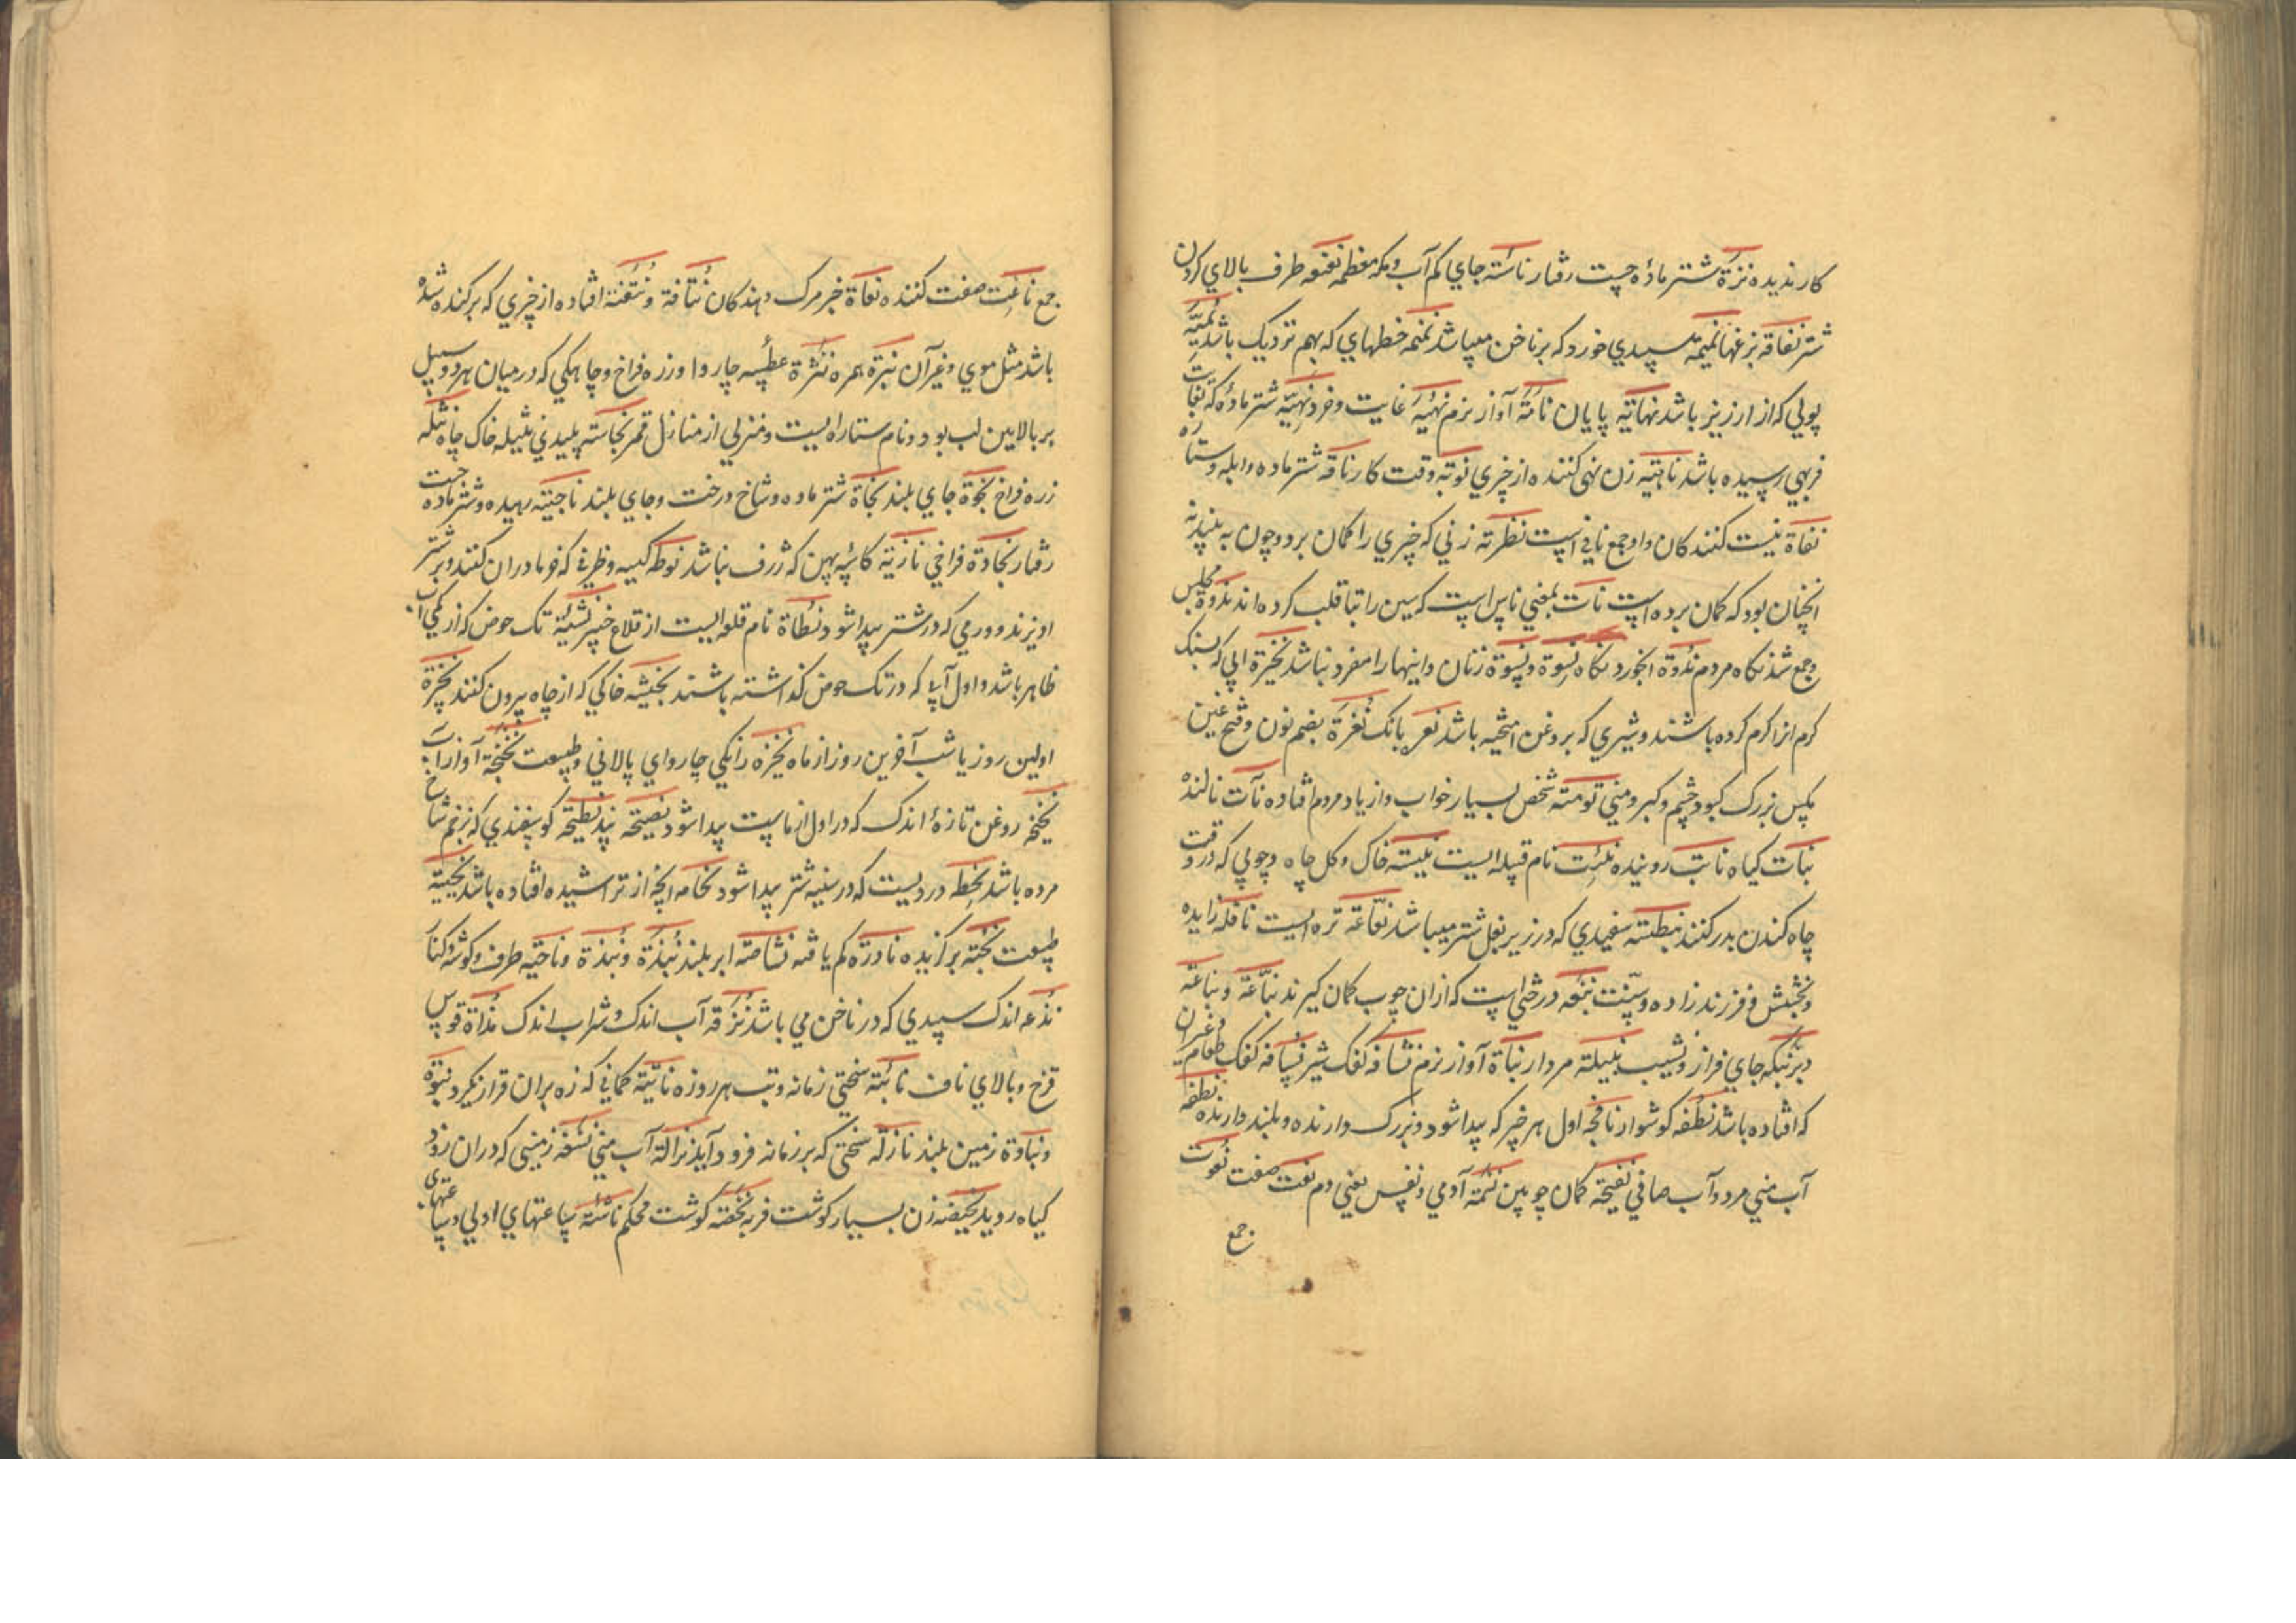 کارندیده نزرة شتر مادۀ چست رفتار ناسّته جای کم آب و مکه معظمه نغنغه طرف بالای کردن
شتر نقاقه بزغها نمیمة سپیدی خورد که بر ناخن میباشد نمنمه خطهای که بهم نزدیک باشد نمیّة
پولی که از ارزیز باشد نهایة پایان نامّة آواز نرم نهیة غایت و خرد نهیّة شتر مادۀ که بغایت
فربهی رسیده باشد ناهیة زن نهی کننده از چیزی نوبة وقت کار ناقة شتر ماده و ابله و ستاره
نفاة نیست کنندکان و او جمع نافی است نظرنة زنی که چیزی را کمان برد و چون به بیند نه
انچنان بود که کمان برده است نات بمعنی ناس است که سین را بتا قلب کرده اند ندوة مجلس
و جمع شدنکاه مردم ندوة ابخوردنکاه نسوة و نسوة زنان و اینها را مفرد نباشد نخیرة ابی که بسنک
کرم انرا کرم کرده باشند و شیری که بروغن امیخته باشد نعرة بانک نغرة بضم نون و فتح عین
مکس بزرک کبود چشم و کبر و منی نومة شخص بسیار خواب و از یاد مردم افتاده نآت نالنده
نبات کیاه نابت روینده نبئت نام قبیله ایست نبیثة خاک و کل چاه و چوبی که در وقت
چاه کندن بدر کنند نبطة سفیدی که در زیر بغل شتر میباشد نعّاعة تره ایست نافلة زایده
و بخشش و فرزندزاده و سنّت نبعة درختی است که ازان چوب کمان کیرند نبّاعة و نباعة
دبر نبکة جای فراز و نشیب نبیلة مردار نباة آواز نرم نشافة کفک شیر نسافة کفک طعام و غیران
که افتاده باشد نطفة کوشوار نافجة اول هر چیز که پیدا شود و بزرک دارنده و بلند دارنده نطفة
آب منی مرد و آب صافی نفیجة کمان چوبین نسمة آدمی و نفس یعنی دم نعت صفت نعوت
جمع
جمع ناعت صفت کننده نعاة خبر مرک دهندکان نتافة و نتفة افتاده از چیزی که برکنده شده
باشد مثل موی و غیر آن نبرة همره نثرة عطسه چاروا و زره فراخ و چاهکی که در میان هر دو سبیل
بر بالایین لب بود و نام ستاره ایست و منزلی از منازل قمر نجاسة پلیدی نثیلة خاک چاه نثلة
زره فراخ نجوة جای بلند نجاة شتر ماده و شاخ درخت و جای بلند ناجیة رهیده و شتر ماده چست
رفتار نجادة فراخی نازیة کاسه پهن که ژرف نباشد نوطة کیسه و ظرفی که خرما دران کنند و بر شتر
اویزند و ورمی که در شتر پیدا شود نطاة نام قلعه ایست از قلاع خیبر نشیئة تک حوض که از کمی آب
ظاهر باشد و اول آبی که در تک حوض کذاشته باشند نجیثة خاکی که از چاه بیرون کنند نحیرة
اولین روز یا شب آخرین روز از ماه نخزة رانکی چاروای پالانی و طبیعت نخنخة آواز آب
نخیخة روغن تازۀ اندک که در اول از ماست پیدا شود نصیحة پند نطیحة کوسفندی که بزخم شاخ
مرده باشد نحطة دردیست که در سینه شتر پیدا شود نحاتة انچه از تراشیده افتاده باشد نحیتة
طبیعت نخبة برکزیده نادرة کم یافته نشاصة ابر بلند نبذة و نبذة و ناحیة طرف و کوشه و کنار
نذعة اندک سپیدی که در ناخن می باشد نزقة آب اندک و شراب اندک نداة قوس
قزح و بالای ناف نائبة سختی زمانه و تب هر روزه نابیة کمانی که زه بران قرار نکیرد نبوة
و نباوة زمین بلند نازلة سختی که بر زمانه فرود آید نزالة آب منی نشفة زمینی که دران زود
کیاه روید نحیضة زن بسیار کوشت فربه نحضة کوشت محکم ناشئة ساعتهای اولی و ساعتهای